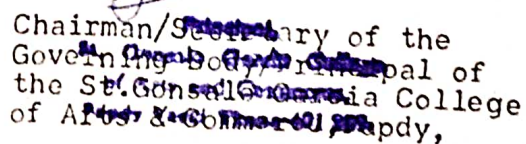 Chairman/Secretary of the
Governing Body/Principal of
the St.Gonsalo Garcia College
of Arts & Commerce,